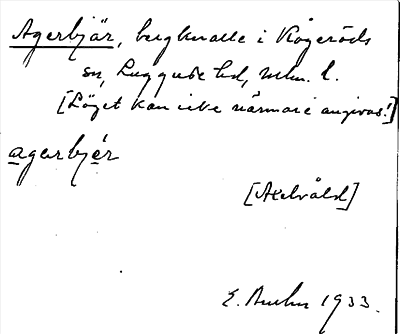 Agerbjär, bergknalle i Kågeröds
sn, Luggude hd, Mlm. l.
[Läget kan icke närmare angivas!]
agerbjér
[Axelvåld]
E. 1933.